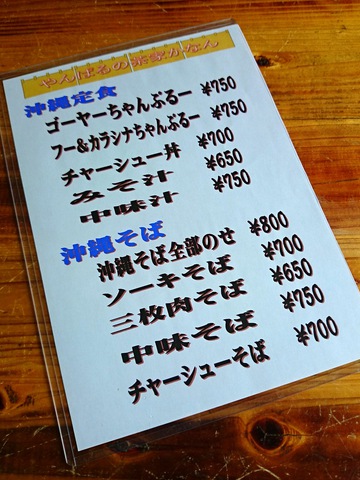 やんばるの茶家かなん
沖縄定食
ゴーヤーちゃんぷるー ¥750
フー&カラシナちゃんぷるー ¥750
チャーシュー丼 ¥700
みそ汁 ¥650
中味汁 ¥750
沖縄そば
沖縄そば全部のせ ¥800
ソーキそば ¥700
三枚肉そば ¥650
中味そば ¥750
チャーシューそば ¥700